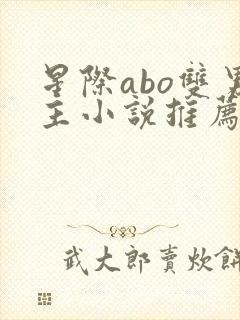 星際abo雙男
主小說推薦
武大郎賣炊餅